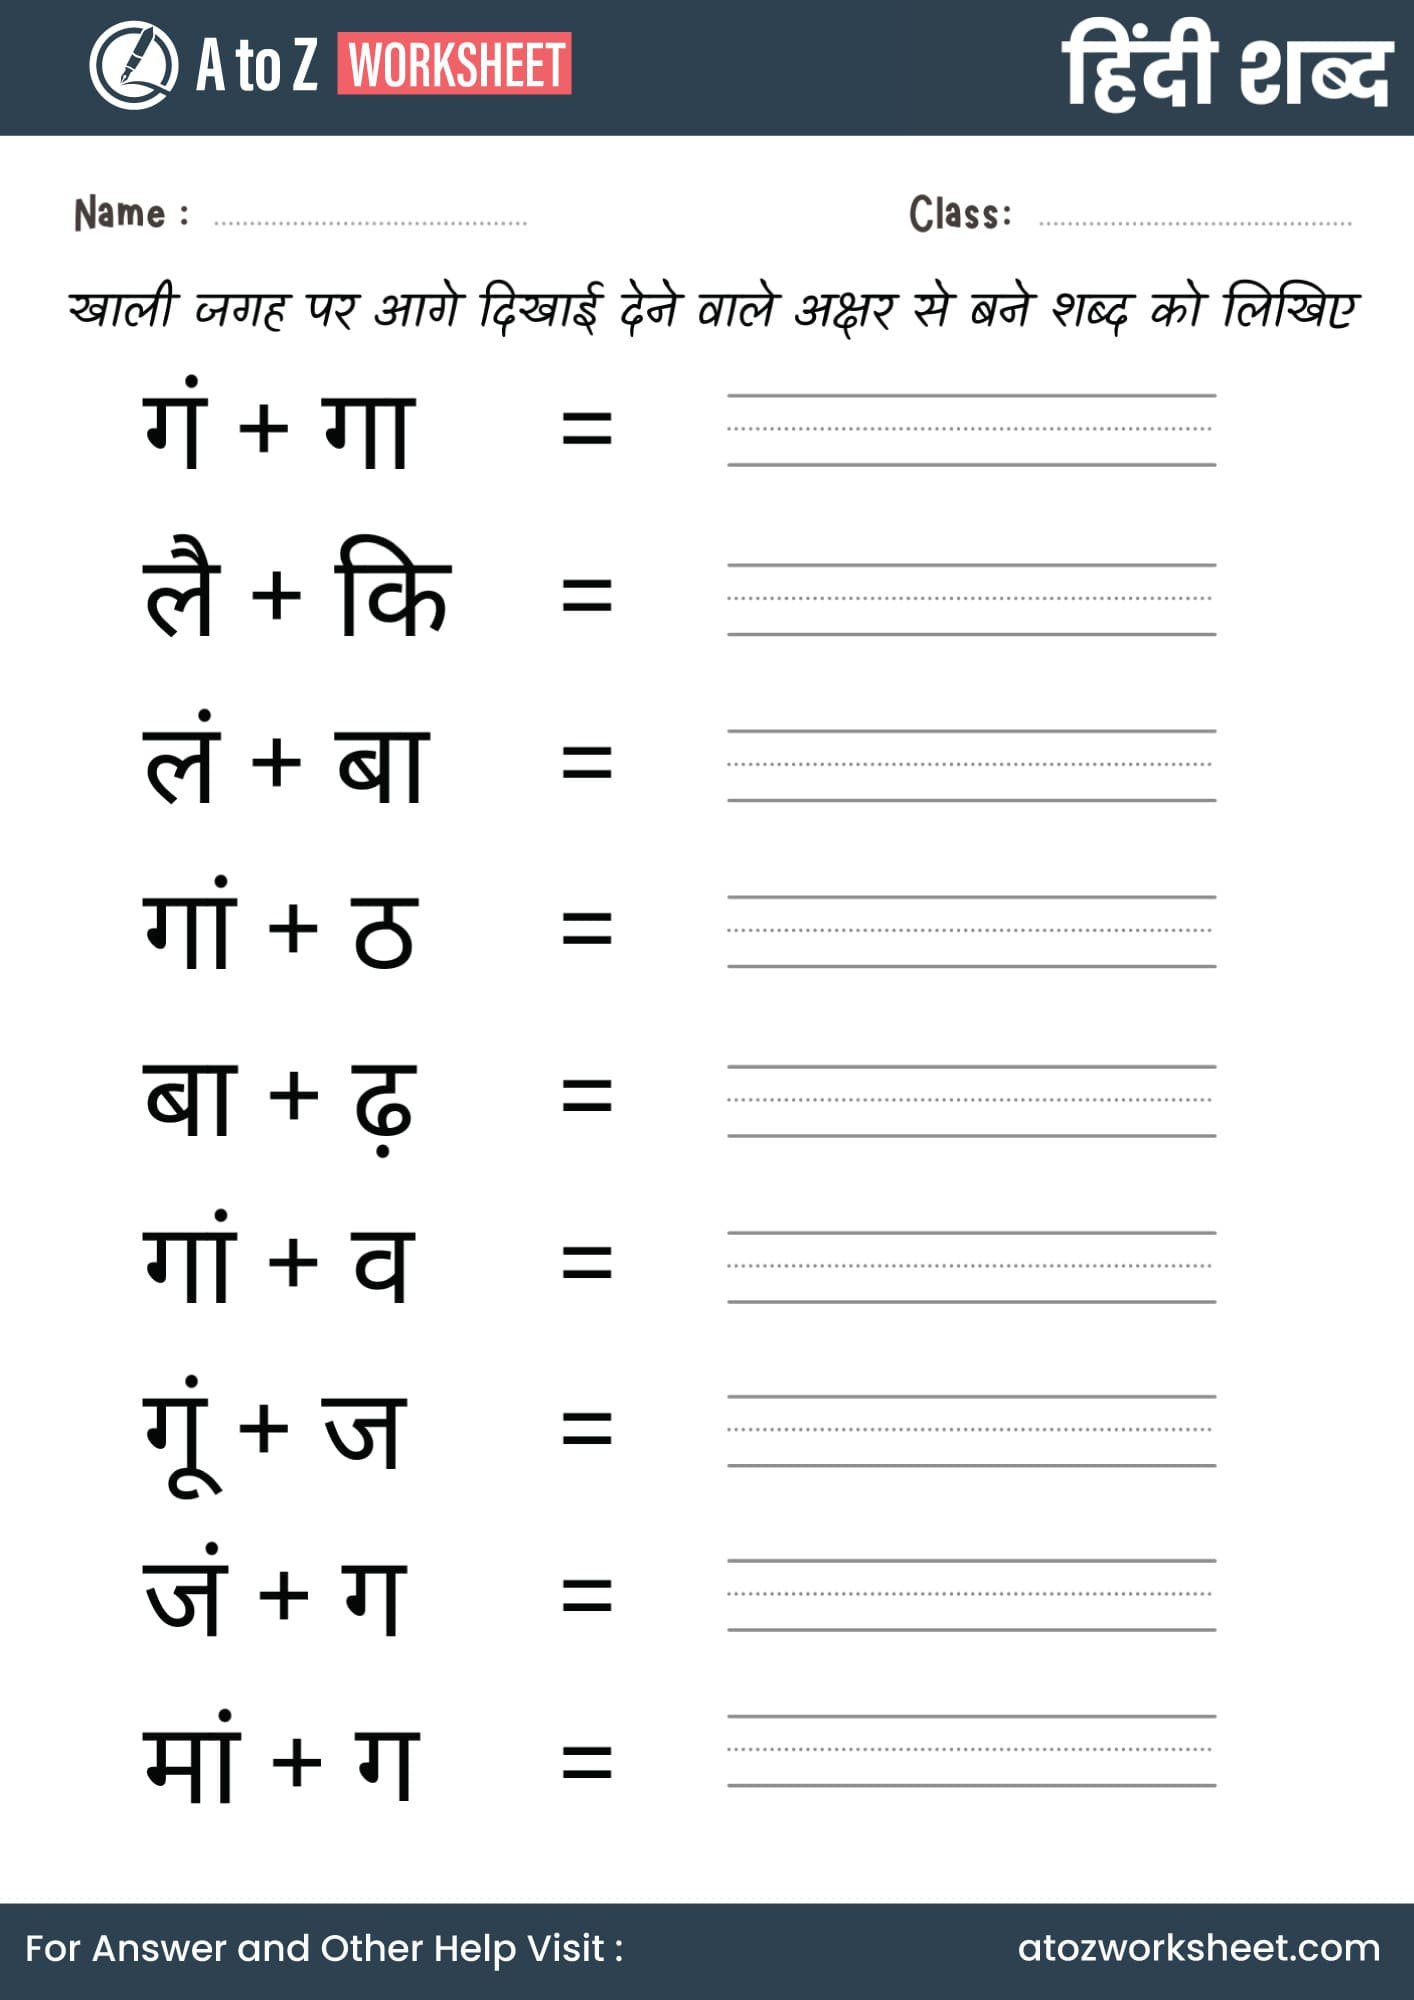 A to Z WORKSHEET हिंदी शब्द
Name : ........................................ Class: ........................................
खाली जगह पर आगे दिखाई देने वाले अक्षर से बने शब्द को लिखिए
गं + गा =
लै + कि =
लं + बा =
गां + ठ =
बा + ढ़ =
गां + व =
गूं + ज =
जं + ग =
मां + ग =
For Answer and Other Help Visit : atozworksheet.com